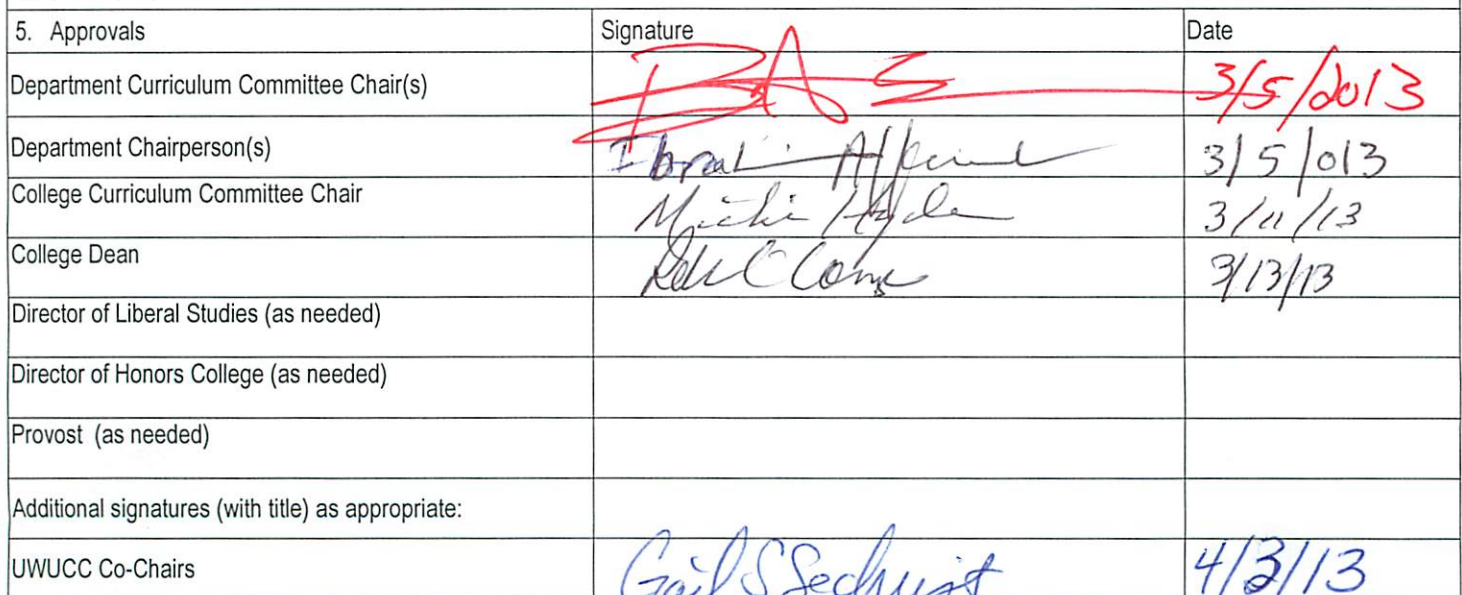 5. Approvals Signature Date
Department Curriculum Committee Chair(s) 3/5/2013
Department Chairperson(s) 3/5/013
College Curriculum Committee Chair 3/11/13
College Dean 3/13/13
Director of Liberal Studies (as needed)
Director of Honors College (as needed)
Provost (as needed)
Additional signatures (with title) as appropriate:
UWUCC Co-Chairs Gail S Sechrist 4/3/13